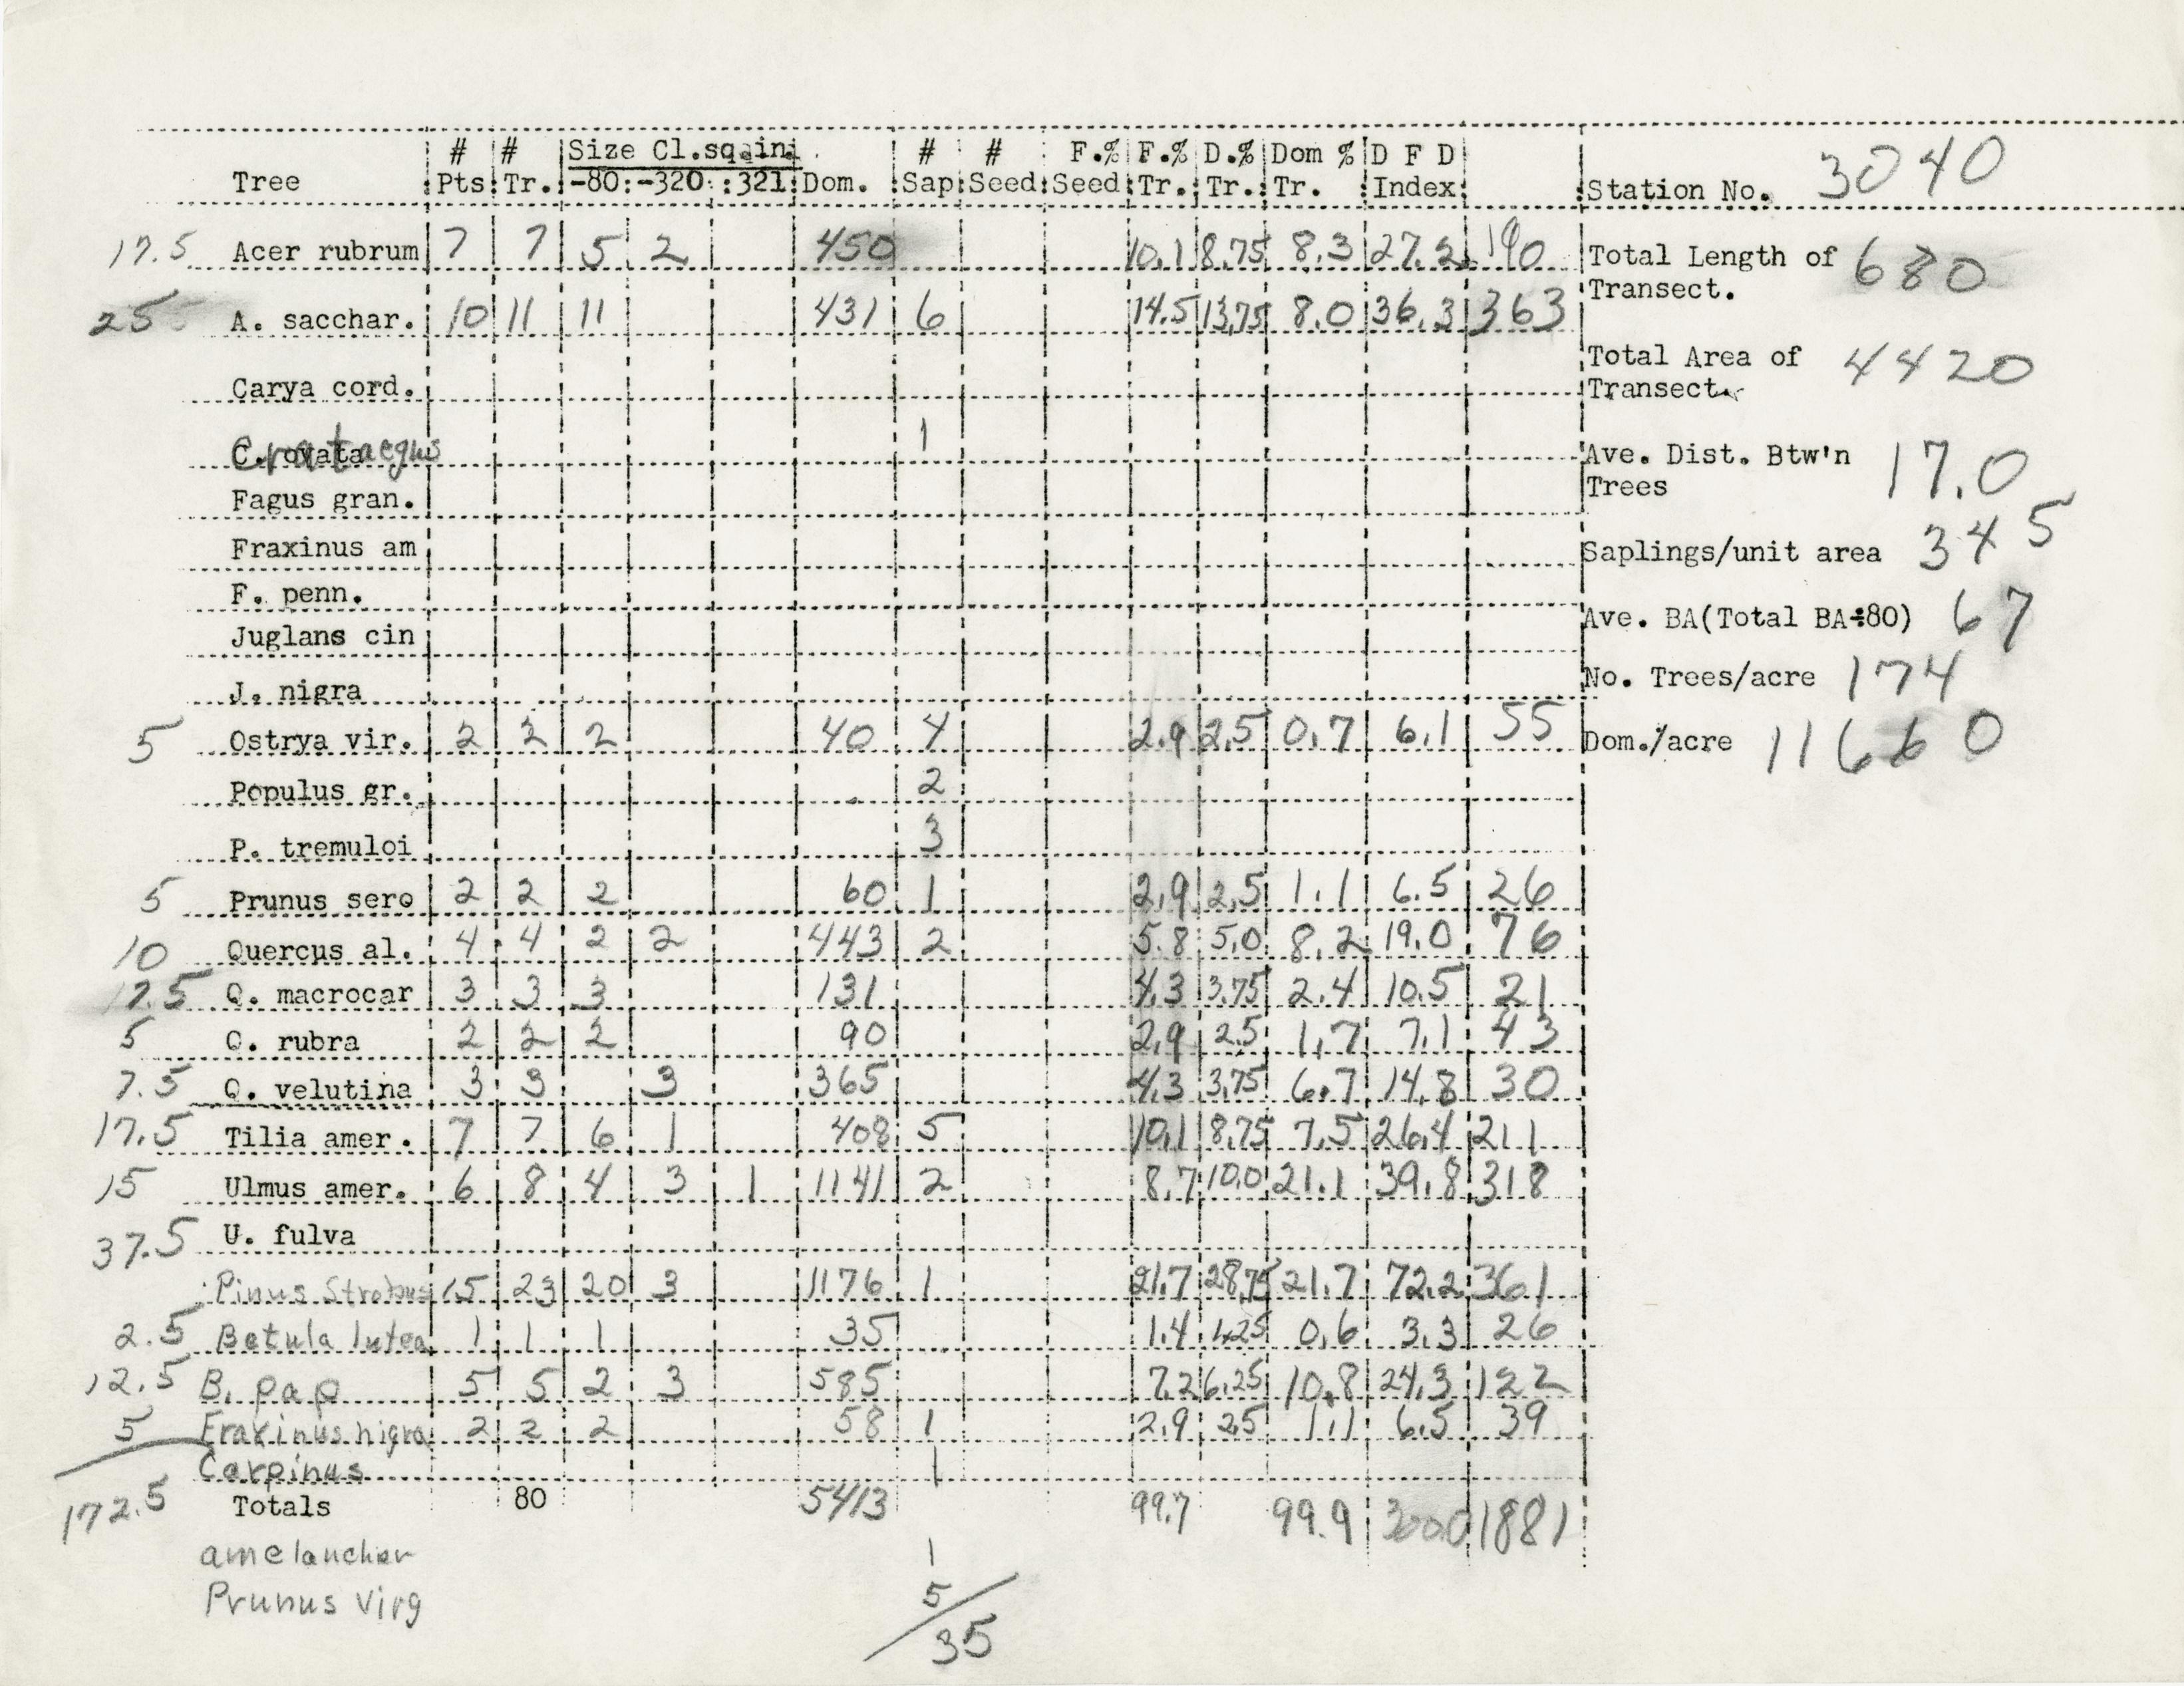 # # Size Cl.sq.in. # # F.% F.% D.% Dom % D F D
Tree Pts Tr. -80 -320 321 Dom. Sap Seed Seed Tr. Tr. Tr. Index Station No. 3040
17.5 Acer rubrum 7 7 5 2 450 10.1 8.75 8.3 27.2 190
Total Length of Transect. 680
25 A. sacchar. 10 11 11 431 6 14.5 13.75 8.0 36.3 363
Total Area of Transect. 4420
Carya cord.
Crataegus 1
Ave. Dist. Btw'n Trees 17.0
Fagus gran.
Fraxinus am
Saplings/unit area 345
F. penn.
Ave. BA(Total BA÷80) 67
Juglans cin
No. Trees/acre 174
J. nigra
5 Ostrya vir. 2 2 2 40 4 2.9 2.5 0.7 6.1 55
Dom./acre 11660
Populus gr. 2
P. tremuloi 3
5 Prunus sero 2 2 2 60 1 2.9 2.5 1.1 6.5 26
10 Quercus al. 4 4 2 2 443 2 5.8 5.0 8.2 19.0 76
7.5 Q. macrocar 3 3 3 131 4.3 3.75 2.4 10.5 21
5 Q. rubra 2 2 2 90 2.9 2.5 1.7 7.1 43
7.5 Q. velutina 3 3 3 365 4.3 3.75 6.7 14.8 30
17.5 Tilia amer. 7 7 6 1 408 5 10.1 8.75 7.5 26.4 211
15 Ulmus amer. 6 8 4 3 1 1141 2 8.7 10.0 21.1 39.8 318
U. fulva
37.5 Pinus Strobus 15 23 20 3 1176 1 21.7 28.75 21.7 72.2 361
2.5 Betula lutea 1 1 1 35 1.4 1.25 0.6 3.3 26
12.5 B. pap 5 5 2 3 585 7.2 6.25 10.8 24.3 122
5 Fraxinus nigra 2 2 2 58 1 2.9 2.5 1.1 6.5 39
Carpinus 1
172.5 Totals 80 5413 99.7 99.9 300.0 1881
amelancher 1
Prunus Virg 5
35